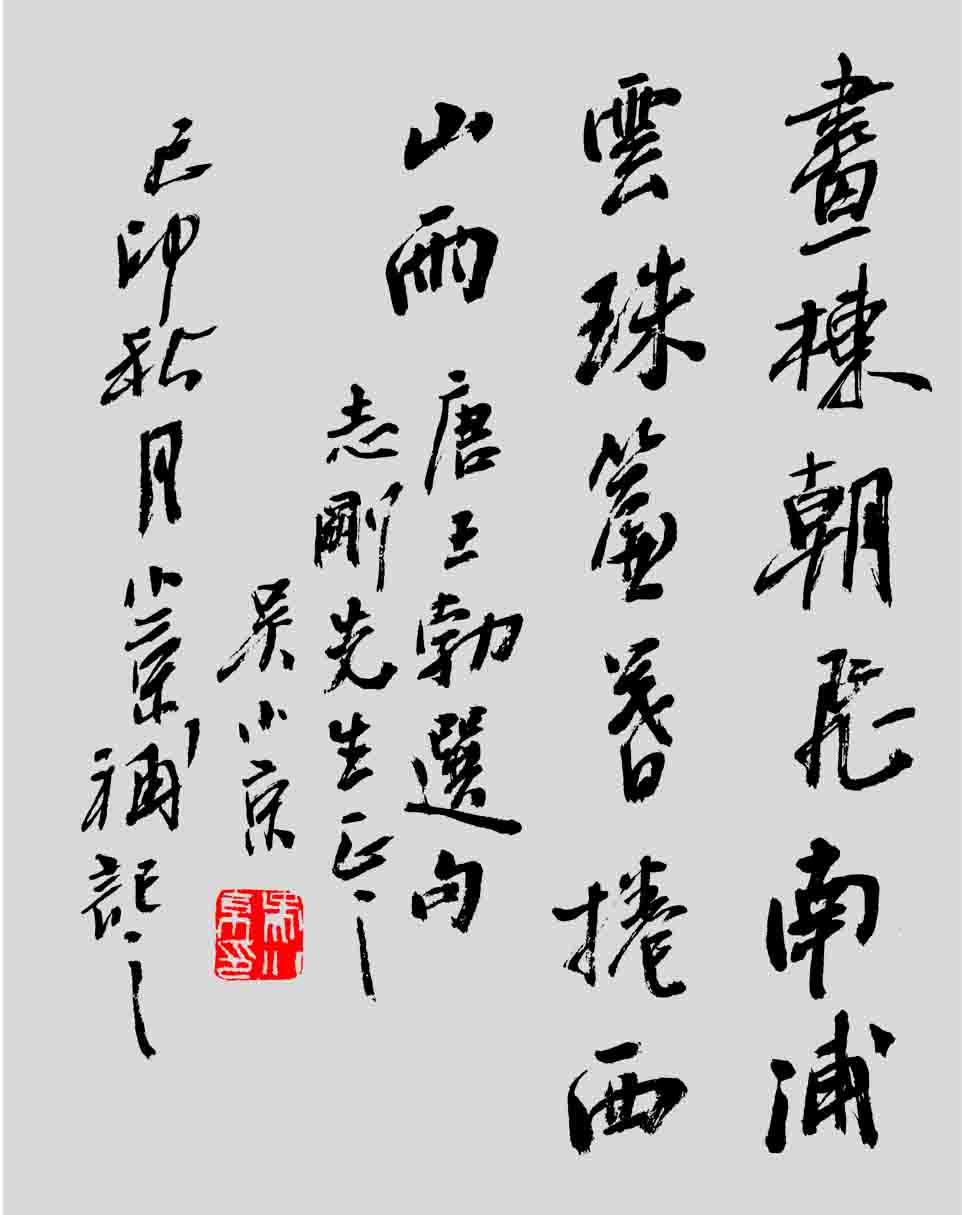 畫棟朝飛南浦
雲珠簾暮捲西
山雨 唐王勃選句
志剛先生正之
吳小京
己卯秋月小京補記之
吳小京印